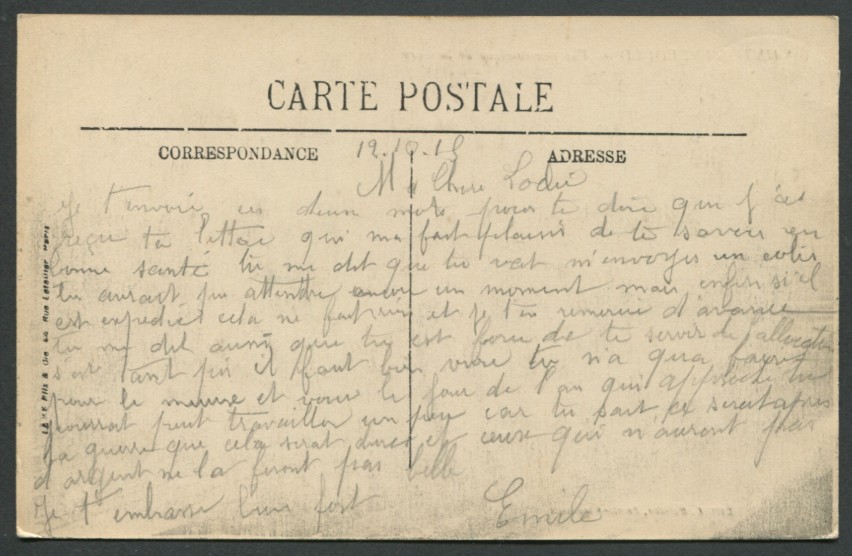 CARTE POSTALE
CORRESPONDANCE
ADRESSE
19.10.15
Ma Chere
Je t'envoie ces deux mots pour te dire que j'ai
reçu ta lettre qui ma fait plaisir de te savoir en
bonne santé tu me dit que tu vat m'envoyer un colis
tu aurait pu attendre encore un moment mais enfin si il
est expedié cela ne fait rien et je t'en remercie d'avance
tu me dit aussi que tu est forcé de te servir de l'allocation
s'est tant pis il faut bien vivre tu n'a qua faire
pour le mieux et voici le jour de l'an qui approche tu
pourrait peut travailler un peu car tu sait ce serait apres
la guerre que cela serat dure et ceuse qui n'auront pas
d'argent ne la feront pas belle
Je t'embrasse bien fort
Emile
Fils & Cie Rue Letellier Paris